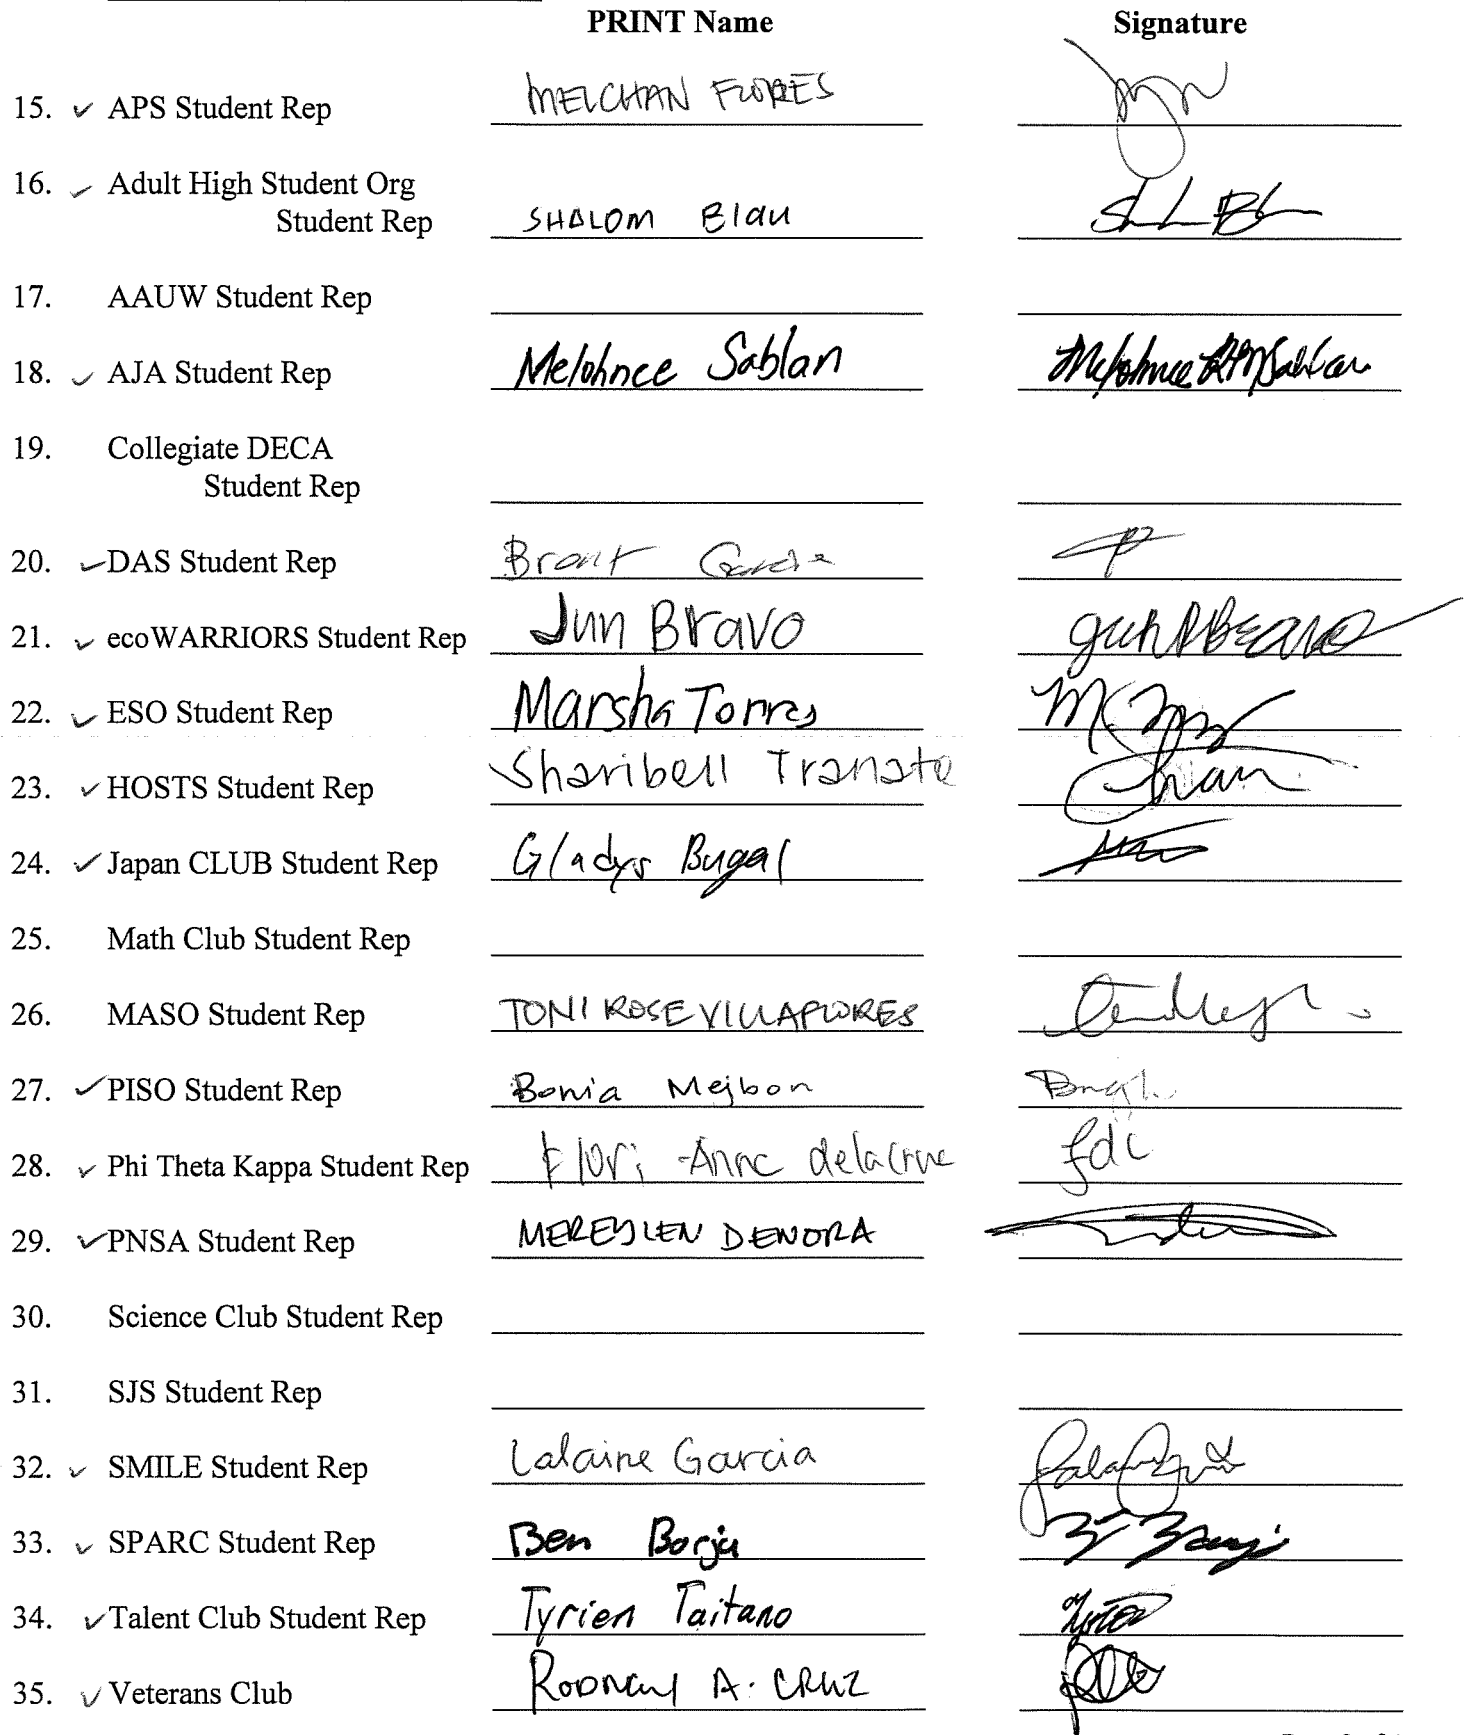 PRINT Name Signature
15. ✓ APS Student Rep MELCHAN FLORES
16. ✓ Adult High Student Org
Student Rep SHALOM Blau
17. AAUW Student Rep
18. ✓ AJA Student Rep Melohnee Sablan
19. Collegiate DECA
Student Rep
20. ✓ DAS Student Rep Brant Garcia
21. ✓ ecoWARRIORS Student Rep Jun Bravo
22. ✓ ESO Student Rep Marsha Torres
23. ✓ HOSTS Student Rep Sharibell Tranate
24. ✓ Japan CLUB Student Rep Gladys Bugal
25. Math Club Student Rep
26. MASO Student Rep TONI ROSE VILLAFLORES
27. ✓ PISO Student Rep Bonia Mejbon
28. ✓ Phi Theta Kappa Student Rep Flori-Anne delacruz fdc
29. ✓ PNSA Student Rep MEREYLEN DENORA
30. Science Club Student Rep
31. SJS Student Rep
32. ✓ SMILE Student Rep Lalaine Garcia
33. ✓ SPARC Student Rep Ben Borja
34. ✓ Talent Club Student Rep Tyrien Taitano
35. ✓ Veterans Club Rodney A. CRUZ